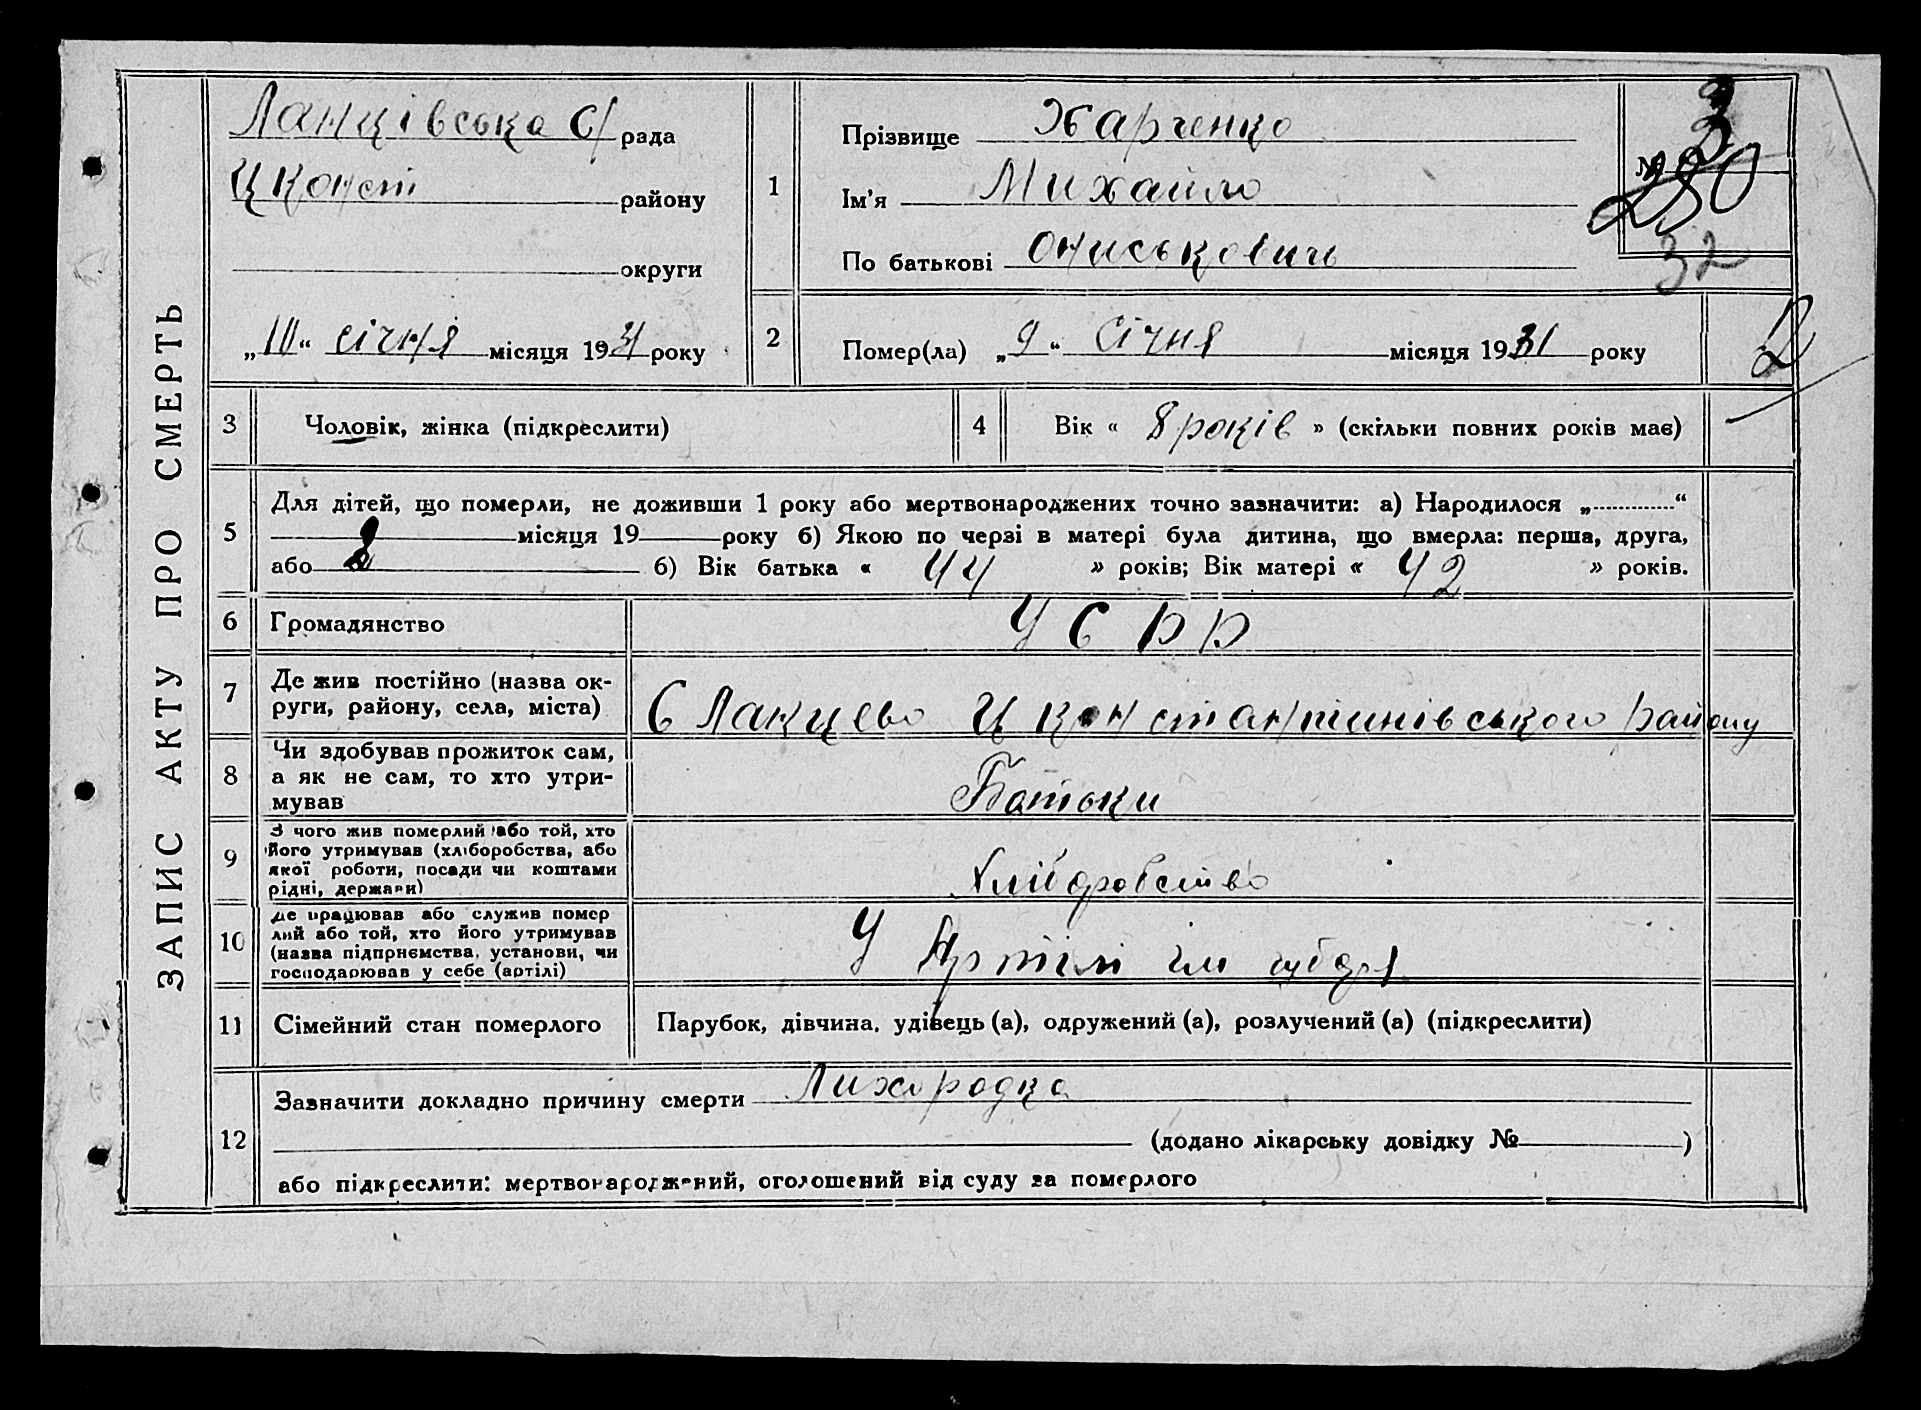 ЗАПИС АКТУ ПРО СМЕРТЬ
Ланцівська С/рада
Цконст району
округи
„10“ січня місяця 1931 року
1
Прізвище Харченко
Ім'я Михайло
По батькові Ониськович
№
3
280
32
2
Помер(ла) „9“ Січня місяця 1931 року
2
3 Чоловік, жінка (підкреслити)
4 Вік « 8 років » (скільки повних років має)
5
Для дітей, що померли, не доживши 1 року або мертвонароджених точно зазначити: а) Народилося „............“
місяця 19 року б) Якою по черзі в матері була дитина, що вмерла: перша, друга,
або б) Вік батька « 44 » років; Вік матері « 42 » років.
6 Громадянство УСРР
7 Де жив постійно (назва ок-
руги, району, села, міста) С Ланцево Цконстантинівського району
8 Чи здобував прожиток сам,
а як не сам, то хто утри-
мував Батьки
9 З чого жив померлий або той, хто
його утримував (хліборобства, або
якої роботи, посади чи коштами
рідні, держави) Хліборобство
10 Де працював або служив помер
лий або той, хто його утримував
(назва підприємства, установи, чи
господарював у себе (артілі) У Артілі ім
11 Сімейний стан померлого Парубок, дівчина, удівець (а), одружений (а), розлучений (а) (підкреслити)
12
Зазначити докладно причину смерти Лихородка
(додано лікарську довідку № )
або підкреслити: мертвонароджений, оголошений від суду за померлого